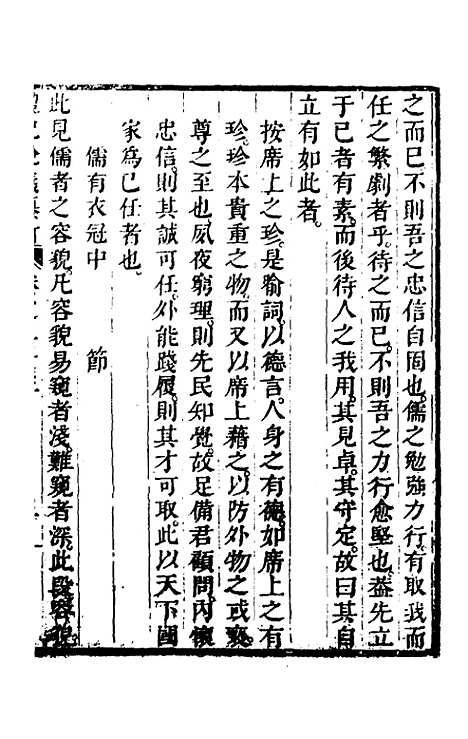 之而已不則吾之忠信自固也儒之勉強力行有取我而
任之繁劇者乎待之而已不則吾之力行愈堅也蓋先立
于已者有素而後待人之我用其見卓其守定故曰其自
立有如此者
按席上之珍是喻詞以德言人身之有德如席上之有
珍珍本貴重之物而又以席上藉之以防外物之或褻
尊之至也夙夜窮理則先民知覺故足備君顧問內懷
忠信則其誠可任外能踐履則其才可取此以天下國
家為已任者也
儒有衣冠中　節
此見儒者之容貌凡容貌易窺者淺難窺者深此段容貌